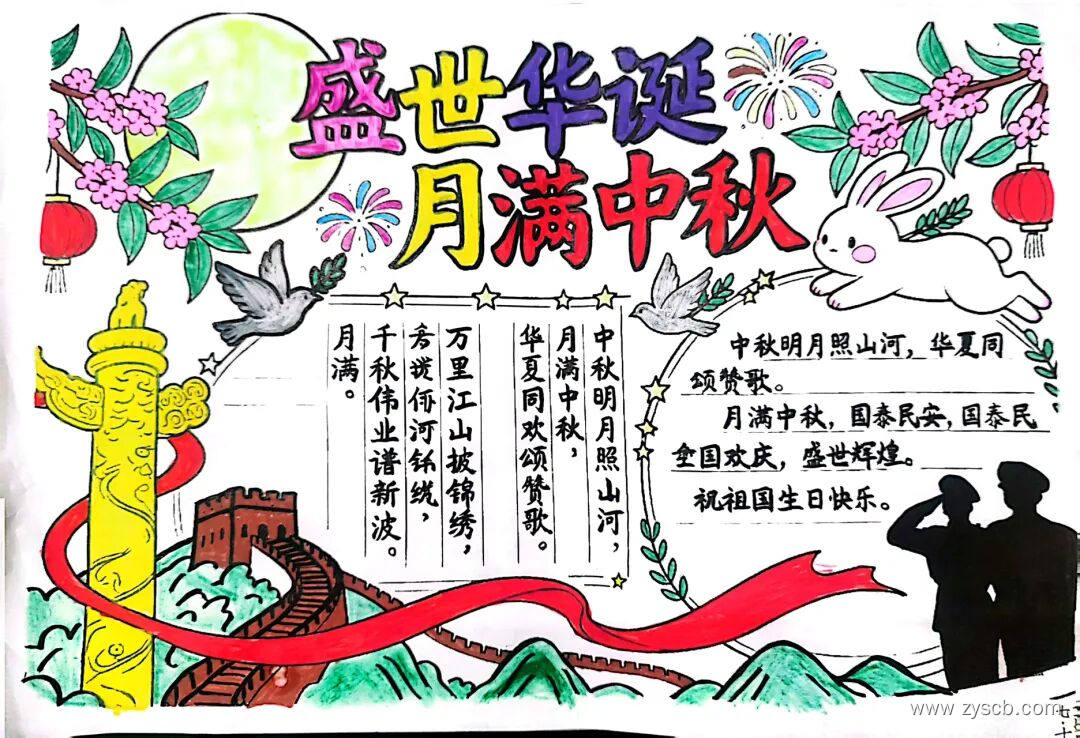 盛世华诞
月满中秋
中秋明月照山河，
月满中秋，
华夏同欢颂赞歌。
万里江山披锦绣，
河
千秋伟业谱新波。
月满。
中秋明月照山河，华夏同
颂赞歌。
月满中秋，国泰民安，国泰民
国欢庆，盛世辉煌。
祝祖国生日快乐。
www.zyscb.com